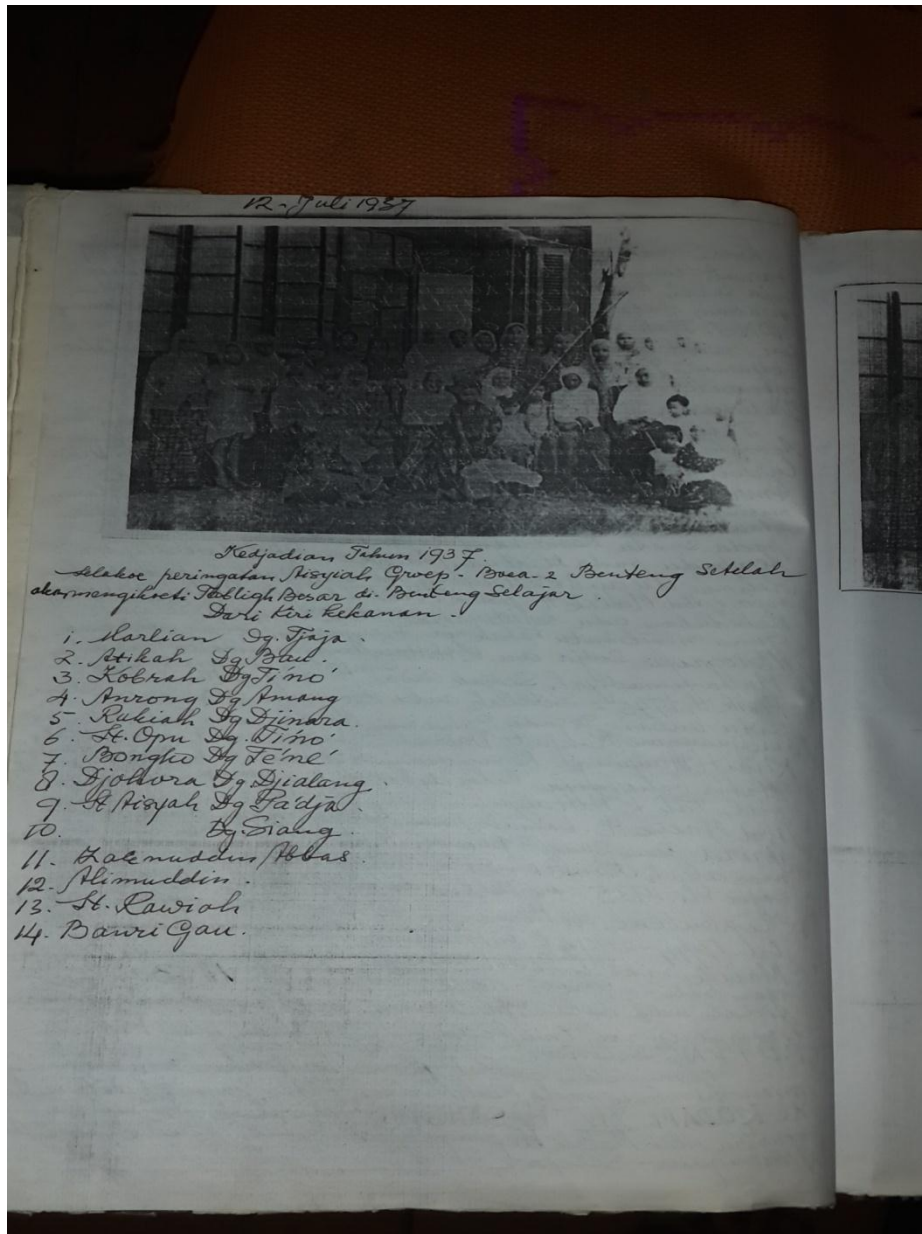 12 - Juli 1937
Kedjadian Tahun 1937.
selakoe peringatan Aisyiah Groep - Boea-2 Benteng Setelah
akan mengikoeti Tabligh Besar di Benteng Selajar.
Dari Kiri kekanan.
1. Marlian Dg. Tjaja.
2. Atikah Dg Bau.
3. Kobrah Dg Ti'no'
4. Anrong Dg Amang
5. Rukiah Dg Djinara.
6. St. Opu Dg. Ti'no'
7. Bongko Dg Te'ne'
8. Djohora Dg Djialang.
9. St Aisyah Dg Pa'dja.
10. Dg. Siang.
11. Zaenuddin Abbas.
12. Alimuddin.
13. St. Rawiah
14. Bauri Gau.